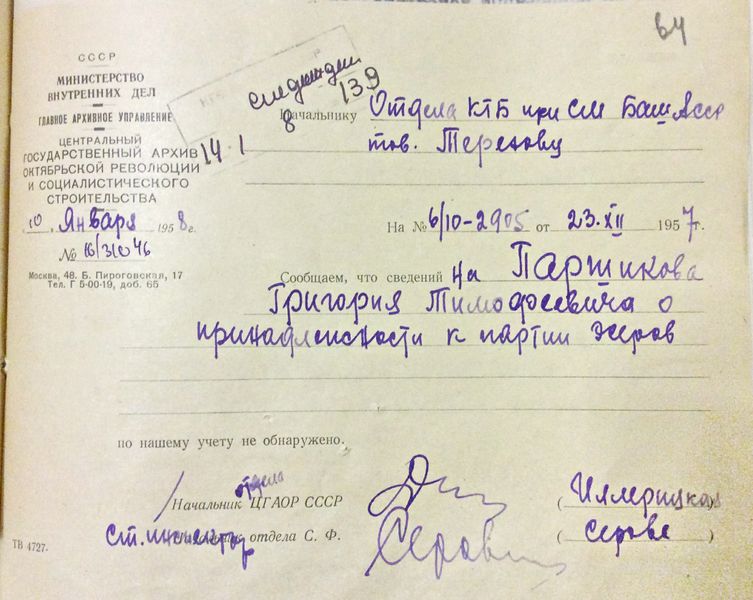 64
СССР
МИНИСТЕРСТВО
ВНУТРЕННИХ ДЕЛ
ГЛАВНОЕ АРХИВНОЕ УПРАВЛЕНИЕ
ЦЕНТРАЛЬНЫЙ
ГОСУДАРСТВЕННЫЙ АРХИВ
ОКТЯБРЬСКОЙ РЕВОЛЮЦИИ
И СОЦИАЛИСТИЧЕСКОГО
СТРОИТЕЛЬСТВА
10 Января 1958 г.
№ 16/31046
Москва, 48. Б. Пироговская, 17
Тел. Г 5-00-19, доб. 65
139
14 1 8
Начальнику Отдела КГБ при СМ Баш АССР
тов. Терехову
На № 6/10-2905 от 23.XII 1957 г.
Сообщаем, что сведений на Паршикова
Григория Тимофеевича о
принадлежности к партии эсеров
по нашему учету не обнаружено.
Начальник отдела ЦГАОР СССР
ст. инспектор отдела С. Ф.
(Иллерицкая)
(Серова)
ТВ 4727.